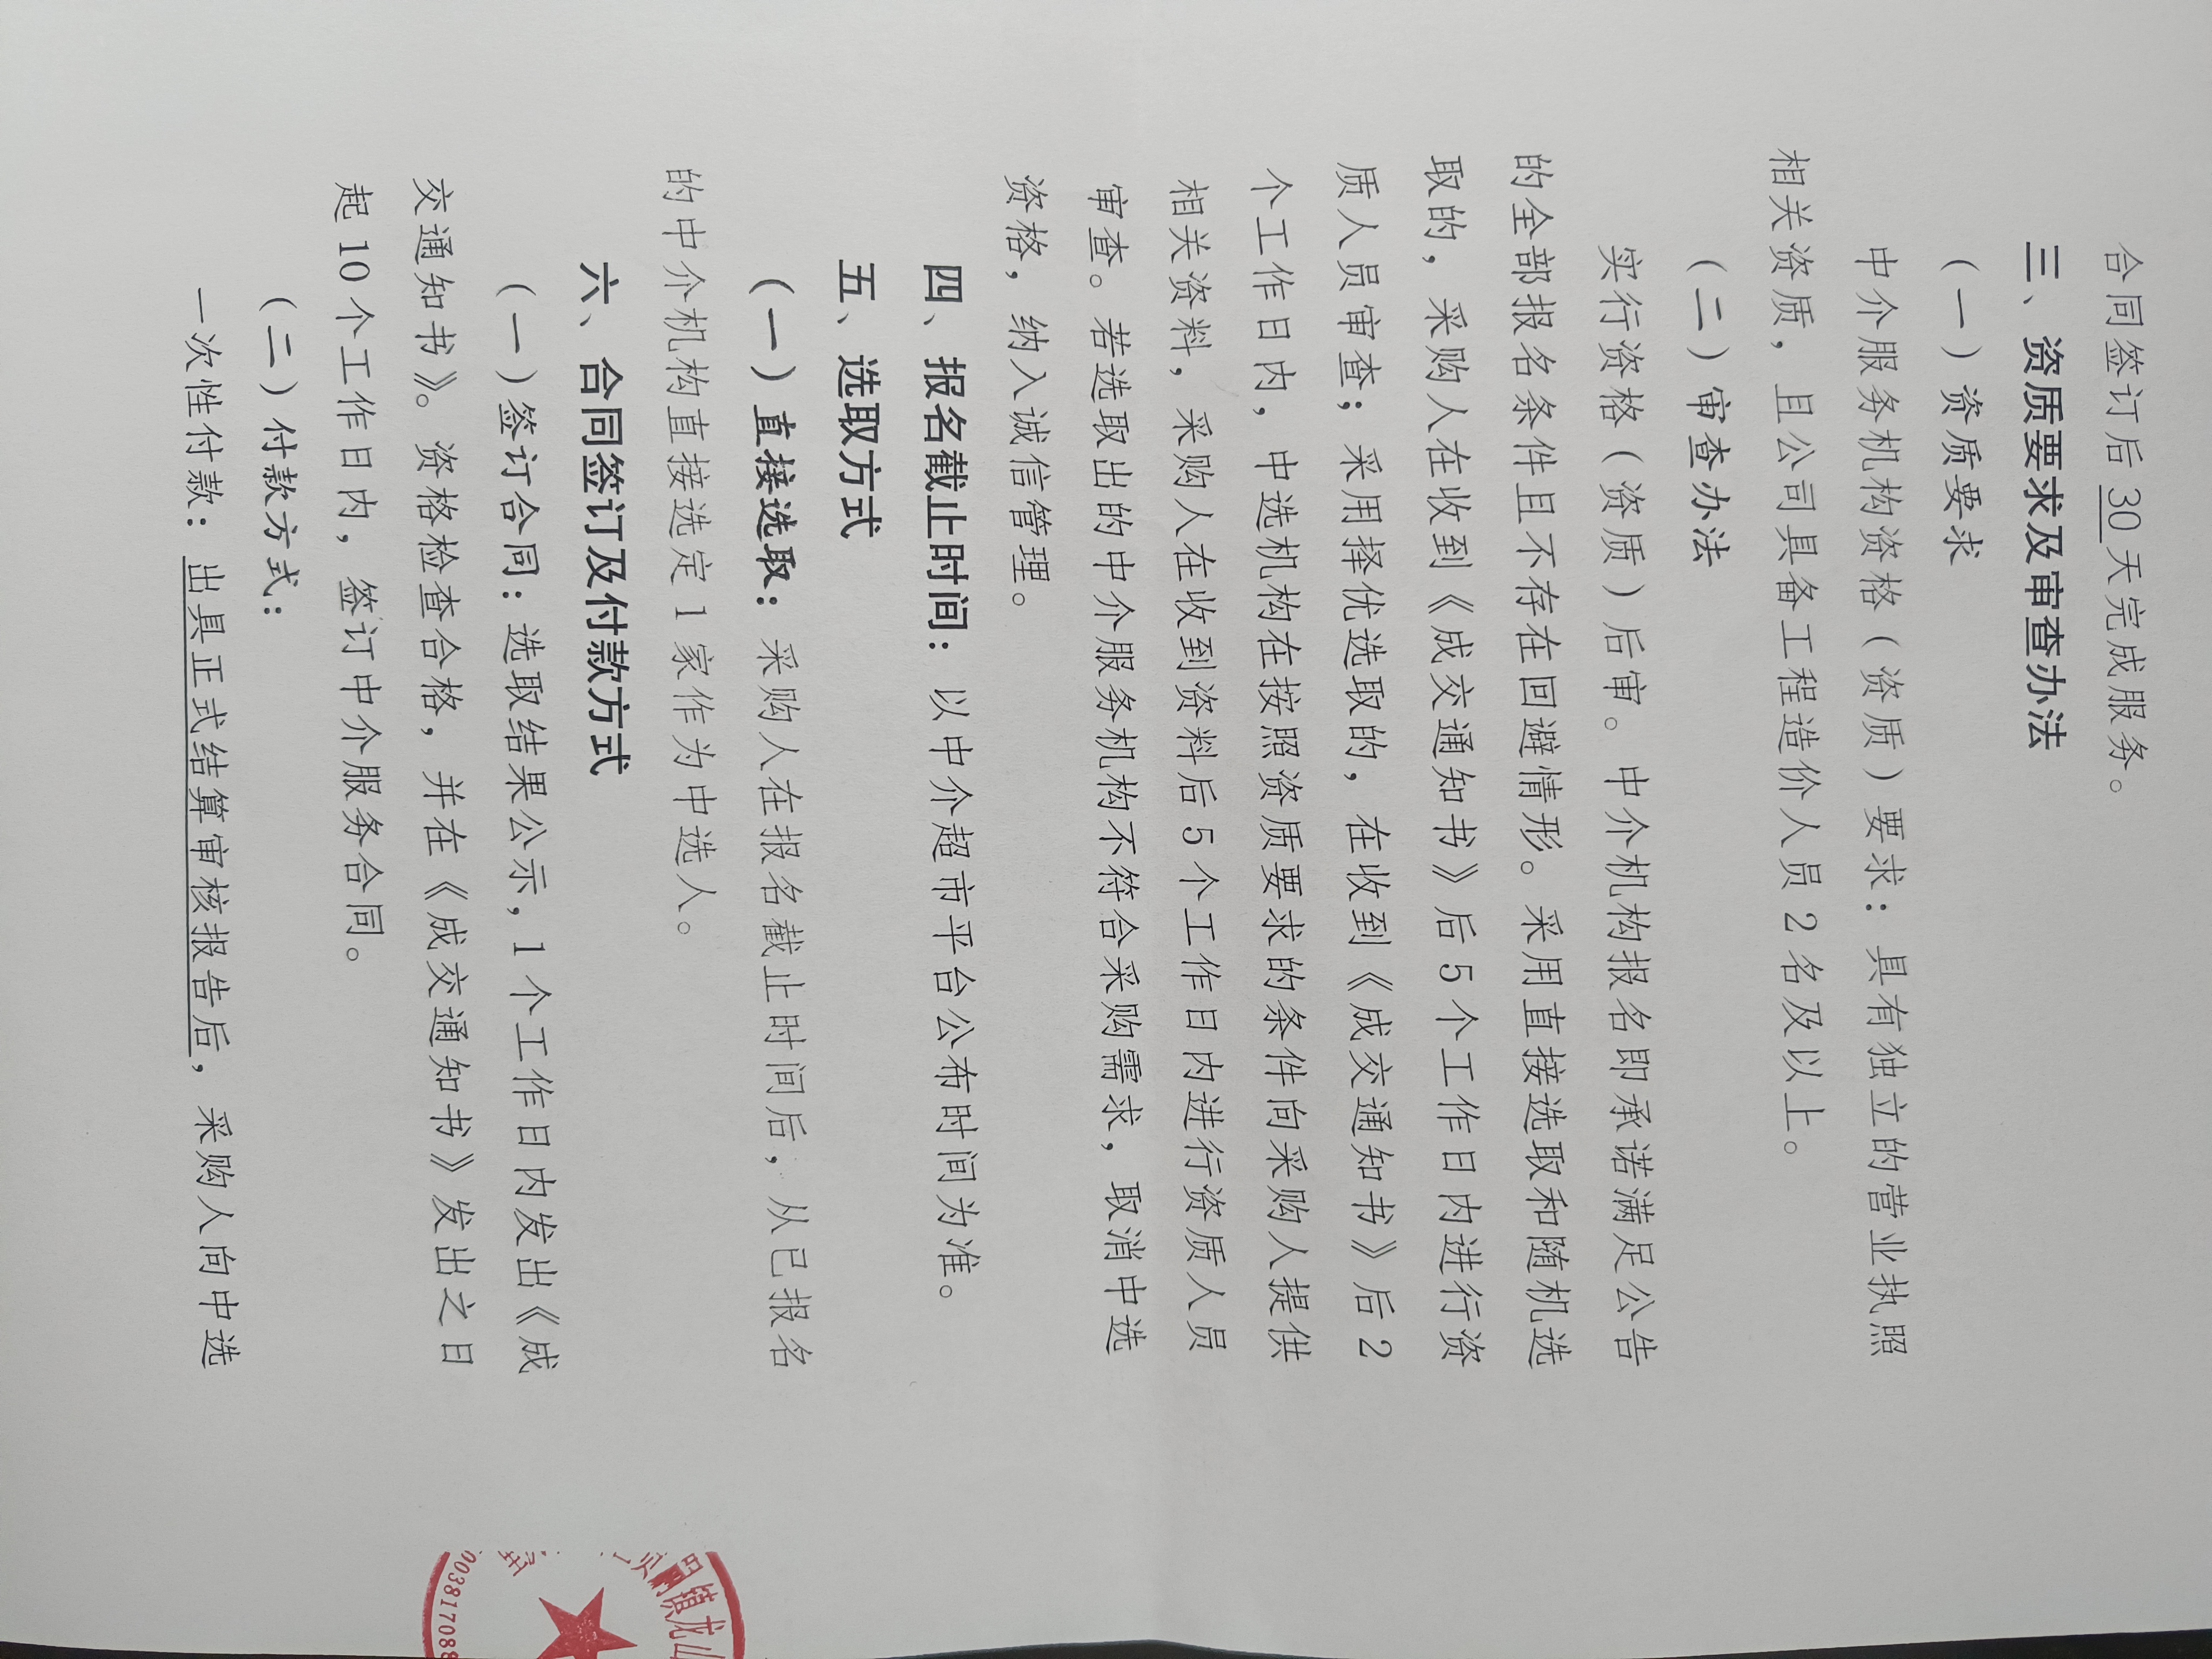 合同签订后30天完成服务。
三、资质要求及审查办法
（一）资质要求
中介服务机构资格（资质）要求：具有独立的营业执照
相关资质，且公司具备工程造价人员2名及以上。
（二）审查办法
实行资格（资质）后审。中介机构报名即承诺满足公告
的全部报名条件且不存在回避情形。采用直接选取和随机选
取的，采购人在收到《成交通知书》后5个工作日内进行资
质人员审查；采用择优选取的，在收到《成交通知书》后2
个工作日内，中选机构在按照资质要求的条件向采购人提供
相关资料，采购人在收到资料后5个工作日内进行资质人员
审查。若选取出的中介服务机构不符合采购需求，取消中选
资格，纳入诚信管理。
四、报名截止时间：以中介超市平台公布时间为准。
五、选取方式
（一）直接选取：采购人在报名截止时间后，从已报名
的中介机构直接选定1家作为中选人。
六、合同签订及付款方式
（一）签订合同：选取结果公示，1个工作日内发出《成
交通知书》。资格检查合格，并在《成交通知书》发出之日
起10个工作日内，签订中介服务合同。
（二）付款方式：
一次性付款：出具正式结算审核报告后，采购人向中选
镇龙山
003817088